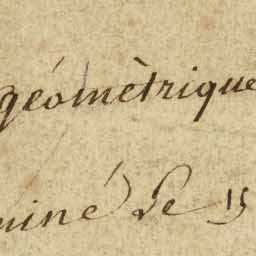 géométrique
miné Le 15